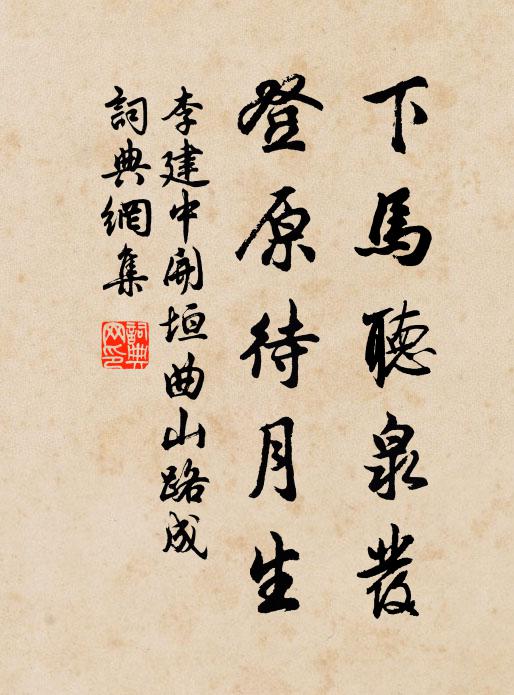 下馬聽泉發
登原待月生
李建中開垣曲山路成
詞典網集
詞典
網印